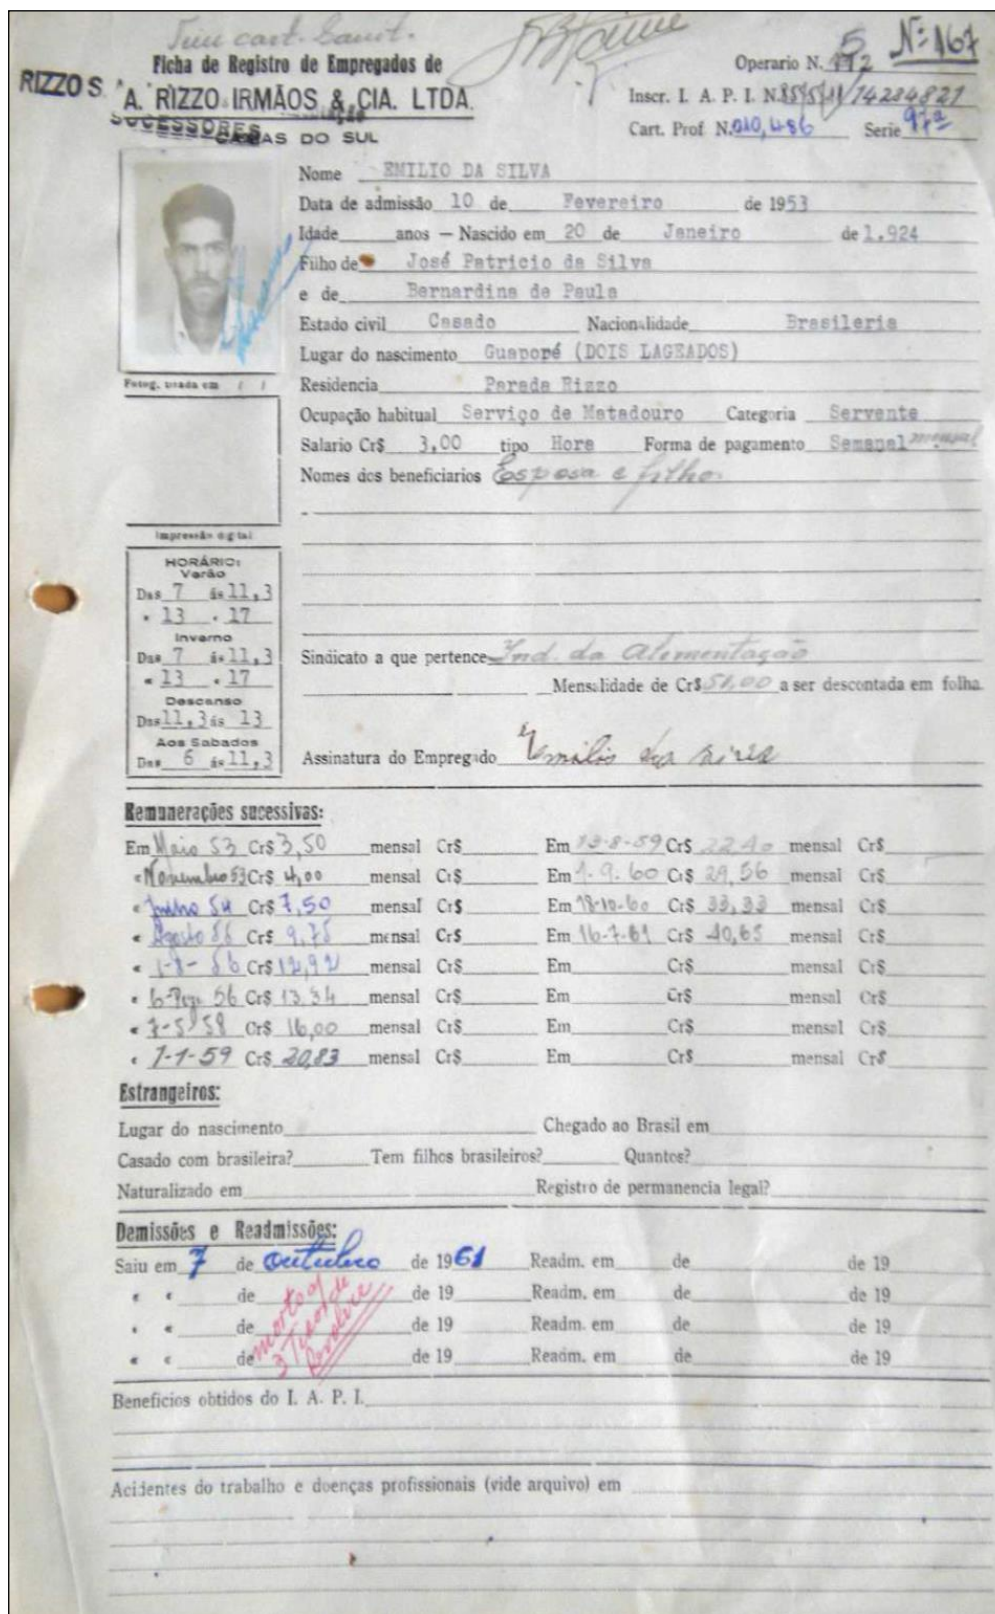 Tem cart. Sanit.
Nº 167
Ficha de Registro de Empregados de
Operario N. 5
RIZZO S. A.
A. RIZZO IRMÃOS & CIA. LTDA.
SUCESSORES
CAXIAS DO SUL
Inscr. I. A. P. I. N. 85/5/11/14234821
Cart. Prof N. 010,486 Serie 97ª
Nome EMILIO DA SILVA
Data de admissão 10 de Fevereiro de 1953
Idade anos — Nascido em 20 de Janeiro de 1.924
Filho de José Patricio da Silva
e de Bernardina de Paula
Estado civil Casado Nacionalidade Brasileria
Lugar do nascimento Guaporé (DOIS LAGEADOS)
Fotog. usada em / /
Residencia Parada Rizzo
Ocupação habitual Serviço de Matadouro Categoria Servente
Salario Cr$ 3,00 tipo Hora Forma de pagamento Semanal mensal
Nomes dos beneficiarios Esposa e filho.
Impressão digital
HORÁRIO:
Verão
Das 7 ás 11,3
" 13 " 17
Inverno
Das 7 ás 11,3
" 13 " 17
Descanso
Das 11,3 ás 13
Aos Sabados
Das 6 ás 11,3
Sindicato a que pertence Ind. da Alimentação
Mensalidade de Cr$ 51,00 a ser descontada em folha.
Assinatura do Empregado Emilio da
Remunerações sucessivas:
Em Maio 53 Cr$ 3,50 mensal Cr$ Em 13-8-59 Cr$ 22,40 mensal Cr$
" Novembro 53 Cr$ 4,00 mensal Cr$ Em 1-9-60 Cr$ 29,56 mensal Cr$
" Junho 54 Cr$ 7,50 mensal Cr$ Em 18-10-60 Cr$ 33,33 mensal Cr$
" Agosto 55 Cr$ 9,75 mensal Cr$ Em 16-7-61 Cr$ 40,65 mensal Cr$
" 1-8-56 Cr$ 12,92 mensal Cr$ Em Cr$ mensal Cr$
" 6- 56 Cr$ 13,34 mensal Cr$ Em Cr$ mensal Cr$
" 7-5-58 Cr$ 16,00 mensal Cr$ Em Cr$ mensal Cr$
" 1-1-59 Cr$ 20,83 mensal Cr$ Em Cr$ mensal Cr$
Estrangeiros:
Lugar do nascimento Chegado ao Brasil em
Casado com brasileira? Tem filhos brasileiros? Quantos?
Naturalizado em Registro de permanencia legal?
Demissões e Readmissões:
Saiu em 7 de Outubro de 1961 Readm. em de de 19
" " de de 19 Readm. em de de 19
" " de de 19 Readm. em de de 19
" " de de 19 Readm. em de de 19
morto a
3 Tiros de
Revolver
Beneficios obtidos do I. A. P. I.
Acidentes do trabalho e doenças profissionais (vide arquivo) em